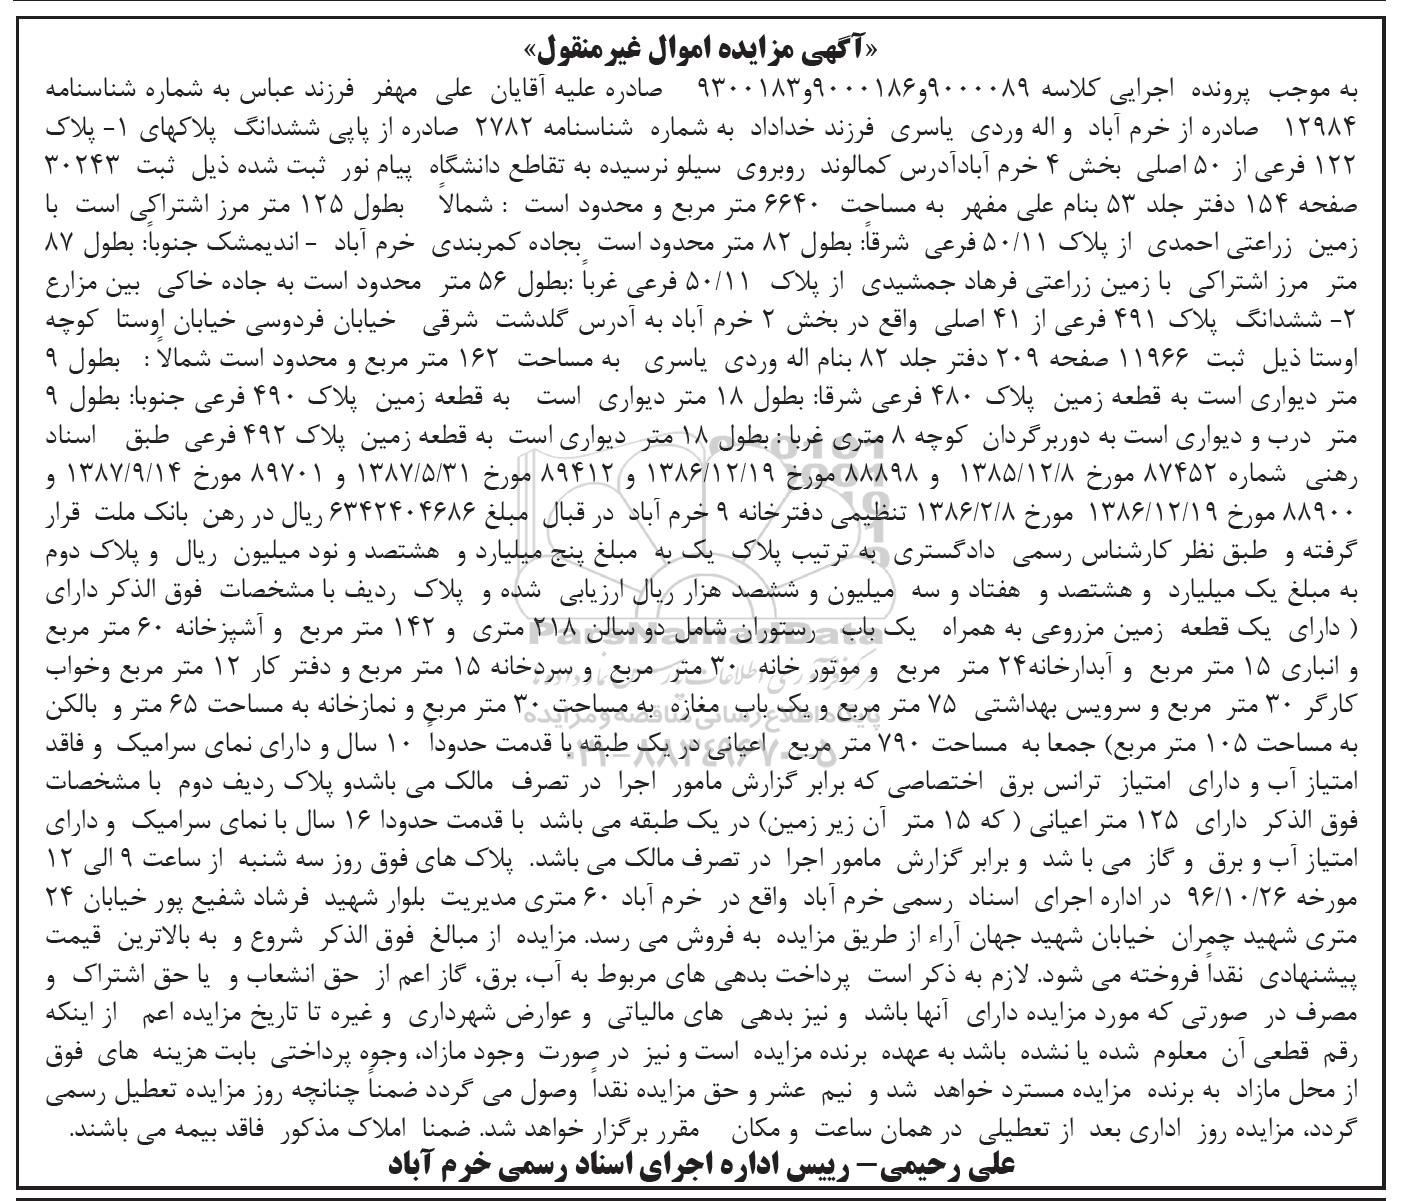 «آگهی مزایده اموال غیرمنقول»
به موجب پرونده اجرایی کلاسه ۹۰۰۰۰۸۹و۹۰۰۰۱۸۶و۹۳۰۰۱۸۳ صادره علیه آقایان علی مهفر فرزند عباس به شماره شناسنامه
۱۲۹۸۴ صادره از خرم آباد و اله وردی یاسری فرزند خداداد به شماره شناسنامه ۲۷۸۲ صادره از پاپی ششدانگ پلاکهای ۱- پلاک
۱۲۲ فرعی از ۵۰ اصلی بخش ۴ خرم آبادآدرس کمالوند روبروی سیلو نرسیده به تقاطع دانشگاه پیام نور ثبت شده ذیل ثبت ۳۰۲۴۳
صفحه ۱۵۴ دفتر جلد ۵۳ بنام علی مفهر به مساحت ۶۶۴۰ متر مربع و محدود است : شمالاً بطول ۱۲۵ متر مرز اشتراکی است با
زمین زراعتی احمدی از پلاک ۵۰/۱۱ فرعی شرقاً: بطول ۸۲ متر محدود است بجاده کمربندی خرم آباد - اندیمشک جنوباً: بطول ۸۷
متر مرز اشتراکی با زمین زراعتی فرهاد جمشیدی از پلاک ۵۰/۱۱ فرعی غرباً :بطول ۵۶ متر محدود است به جاده خاکی بین مزارع
۲- ششدانگ پلاک ۴۹۱ فرعی از ۴۱ اصلی واقع در بخش ۲ خرم آباد به آدرس گلدشت شرقی خیابان فردوسی خیابان اوستا کوچه
اوستا ذیل ثبت ۱۱۹۶۶ صفحه ۲۰۹ دفتر جلد ۸۲ بنام اله وردی یاسری به مساحت ۱۶۲ متر مربع و محدود است شمالاً : بطول ۹
متر دیواری است به قطعه زمین پلاک ۴۸۰ فرعی شرقا: بطول ۱۸ متر دیواری است به قطعه زمین پلاک ۴۹۰ فرعی جنوبا: بطول ۹
متر درب و دیواری است به دوربرگردان کوچه ۸ متری غربا : بطول ۱۸ متر دیواری است به قطعه زمین پلاک ۴۹۲ فرعی طبق اسناد
رهنی شماره ۸۷۴۵۲ مورخ ۱۳۸۵/۱۲/۸ و ۸۸۸۹۸ مورخ ۱۳۸۶/۱۲/۱۹ و ۸۹۴۱۲ مورخ ۱۳۸۷/۵/۳۱ و ۸۹۷۰۱ مورخ ۱۳۸۷/۹/۱۴ و
۸۸۹۰۰ مورخ ۱۳۸۶/۱۲/۱۹ مورخ ۱۳۸۶/۲/۸ تنظیمی دفترخانه ۹ خرم آباد در قبال مبلغ ۶۳۴۲۴۰۴۶۸۶ ریال در رهن بانک ملت قرار
گرفته و طبق نظر کارشناس رسمی دادگستری به ترتیب پلاک یک به مبلغ پنج میلیارد و هشتصد و نود میلیون ریال و پلاک دوم
به مبلغ یک میلیارد و هشتصد و هفتاد و سه میلیون و ششصد هزار ریال ارزیابی شده و پلاک ردیف با مشخصات فوق الذکر دارای
( دارای یک قطعه زمین مزروعی به همراه یک باب رستوران شامل دو سالن ۲۱۸ متری و ۱۴۲ متر مربع و آشپزخانه ۶۰ متر مربع
و انباری ۱۵ متر مربع و آبدارخانه۲۴ متر مربع و موتور خانه ۳۰ متر مربع و سردخانه ۱۵ متر مربع و دفتر کار ۱۲ متر مربع وخواب
کارگر ۳۰ متر مربع و سرویس بهداشتی ۷۵ متر مربع و یک باب مغازه به مساحت ۳۰ متر مربع و نمازخانه به مساحت ۶۵ متر و بالکن
به مساحت ۱۰۵ متر مربع) جمعا به مساحت ۷۹۰ متر مربع اعیانی در یک طبقه با قدمت حدوداً ۱۰ سال و دارای نمای سرامیک و فاقد
امتیاز آب و دارای امتیاز ترانس برق اختصاصی که برابر گزارش مامور اجرا در تصرف مالک می باشدو پلاک ردیف دوم با مشخصات
فوق الذکر دارای ۱۲۵ متر اعیانی ( که ۱۵ متر آن زیر زمین) در یک طبقه می باشد با قدمت حدودا ۱۶ سال با نمای سرامیک و دارای
امتیاز آب و برق و گاز می با شد و برابر گزارش مامور اجرا در تصرف مالک می باشد. پلاک های فوق روز سه شنبه از ساعت ۹ الی ۱۲
مورخه ۹۶/۱۰/۲۶ در اداره اجرای اسناد رسمی خرم آباد واقع در خرم آباد ۶۰ متری مدیریت بلوار شهید فرشاد شفیع پور خیابان ۲۴
متری شهید چمران خیابان شهید جهان آراء از طریق مزایده به فروش می رسد. مزایده از مبالغ فوق الذکر شروع و به بالاترین قیمت
پیشنهادی نقداً فروخته می شود. لازم به ذکر است پرداخت بدهی های مربوط به آب، برق، گاز اعم از حق انشعاب و یا حق اشتراک و
مصرف در صورتی که مورد مزایده دارای آنها باشد و نیز بدهی های مالیاتی و عوارض شهرداری و غیره تا تاریخ مزایده اعم از اینکه
رقم قطعی آن معلوم شده یا نشده باشد به عهده برنده مزایده است و نیز در صورت وجود مازاد، وجوه پرداختی بابت هزینه های فوق
از محل مازاد به برنده مزایده مسترد خواهد شد و نیم عشر و حق مزایده نقداً وصول می گردد ضمناً چنانچه روز مزایده تعطیل رسمی
گردد، مزایده روز اداری بعد از تعطیلی در همان ساعت و مکان مقرر برگزار خواهد شد. ضمنا املاک مذکور فاقد بیمه می باشند.
علی رحیمی- رییس اداره اجرای اسناد رسمی خرم آباد
ParsNamadData
پایگاه اطلاع رسانی مناقصه و مزایده
۰۲۱-۸۸۳۴۹۶۷۰-۵